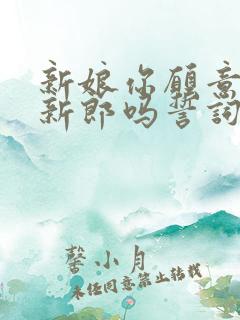 新娘你愿意
新郎吗誓词
馨小月
未经同意禁止转载